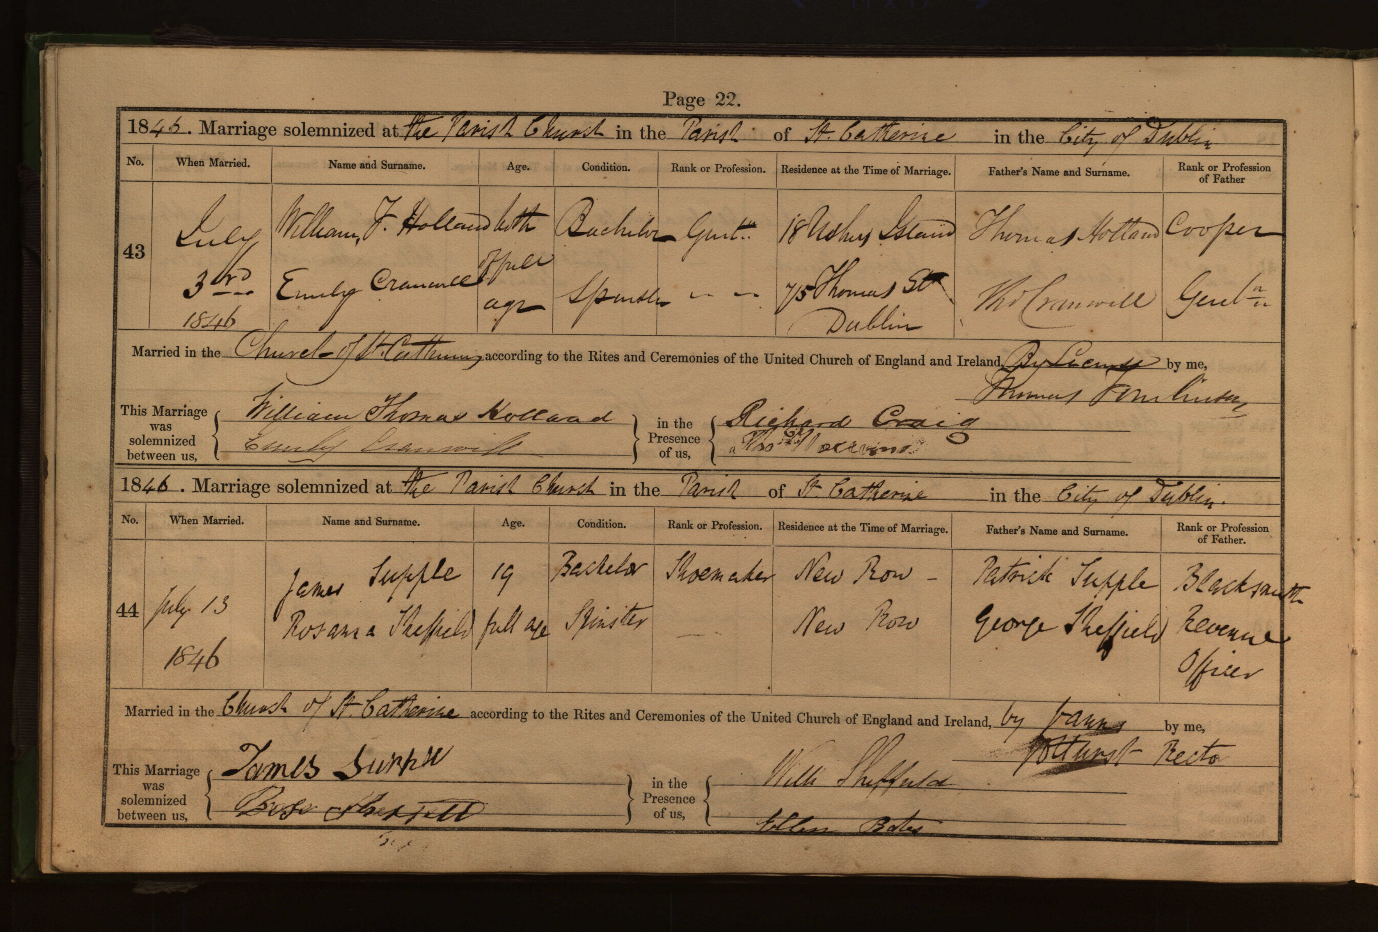 Page 22.
1846. Marriage solemnized at the Parish Church in the Parish of St. Catherine in the City of Dublin
No. When Married. Name and Surname. Age. Condition. Rank or Profession. Residence at the Time of Marriage. Father's Name and Surname. Rank or Profession of Father
43 July 3rd 1846
William F. Holland both Bachelor Gent. 18 Ushers Island Thomas Holland Cooper
Emily Cranwill of full age Spinster 75 Thomas St Dublin Thos Cranwill Gentn
Married in the Church of St Catherine according to the Rites and Ceremonies of the United Church of England and Ireland, By License by me,
Thomas Tomlinson
This Marriage was solemnized between us, William Thomas Holland in the Presence of us, Richard Craig
Emily Cranwill Thos
1846. Marriage solemnized at the Parish Church in the Parish of St. Catherine in the City of Dublin.
No. When Married. Name and Surname. Age. Condition. Rank or Profession. Residence at the Time of Marriage. Father's Name and Surname. Rank or Profession of Father.
44 July 13 1846
James Supple 19 Bachelor Shoemaker New Row – Patrick Supple Blacksmith
Rosanna Sheffield full age Spinster — New Row George Sheffield Revenue Officer
Married in the Church of St. Catherine according to the Rites and Ceremonies of the United Church of England and Ireland, by by me,
Recto
This Marriage was solemnized between us, James Supple in the Presence of us, Willm Sheffield
Ellen Bates